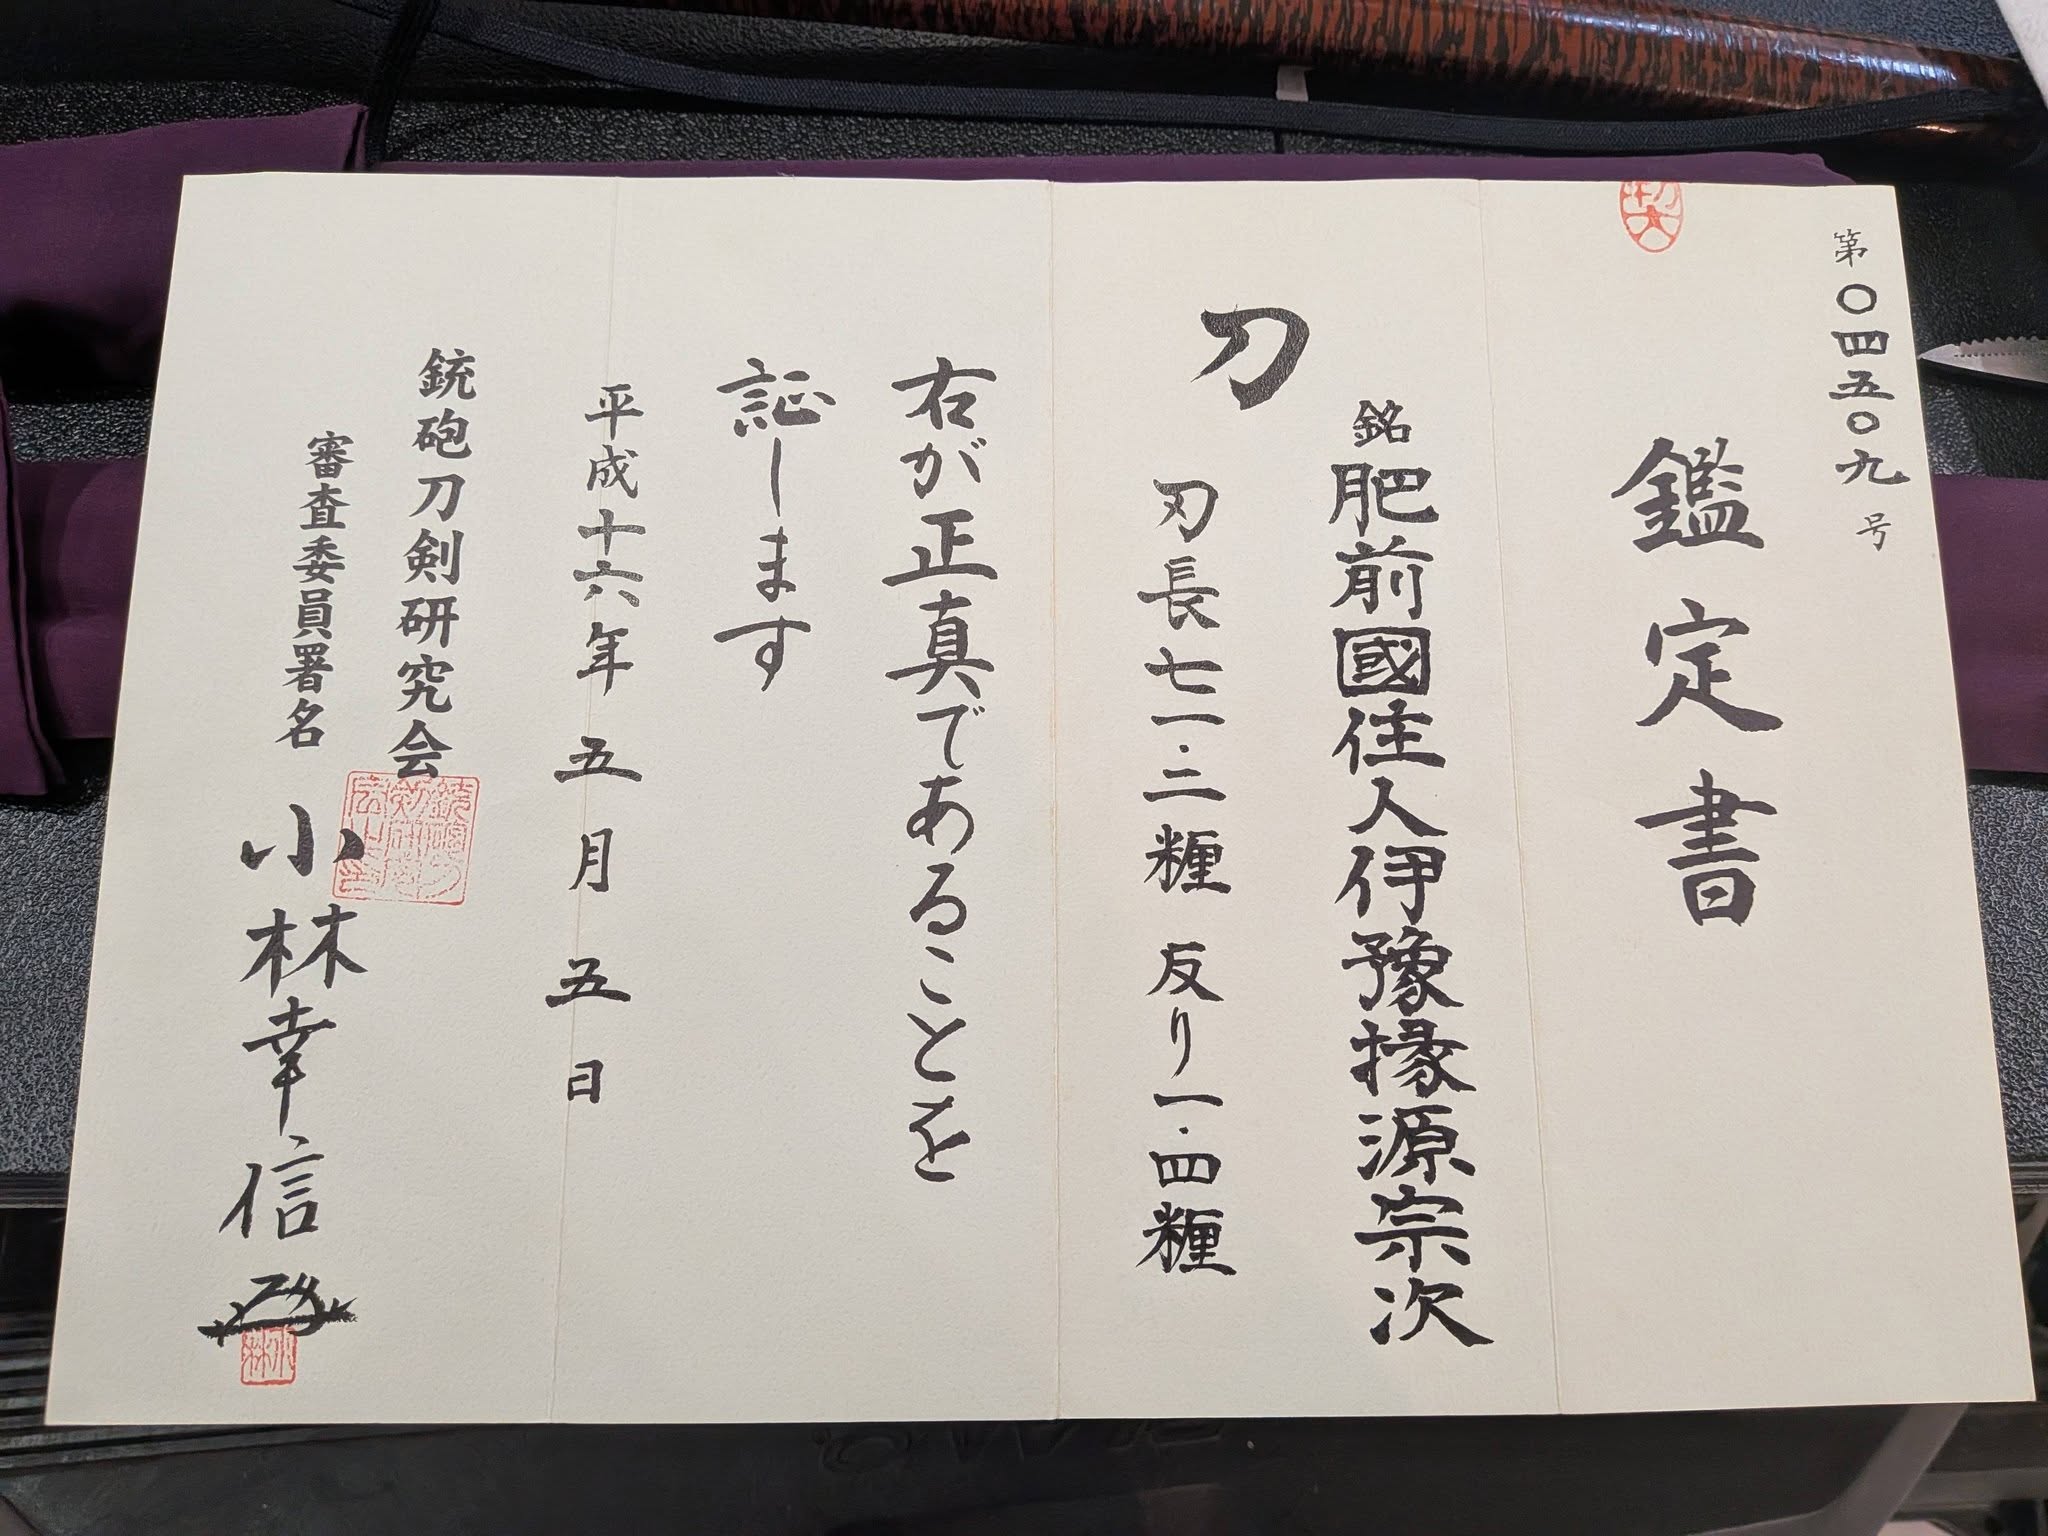 第〇四五〇九号
鑑定書
刀
銘肥前國住人伊豫掾源宗次
刃長七一・二糎 反り一・四糎
右が正真であることを
証します
平成十六年五月五日
銃砲刀剣研究会
審査委員署名 小林幸信
小林